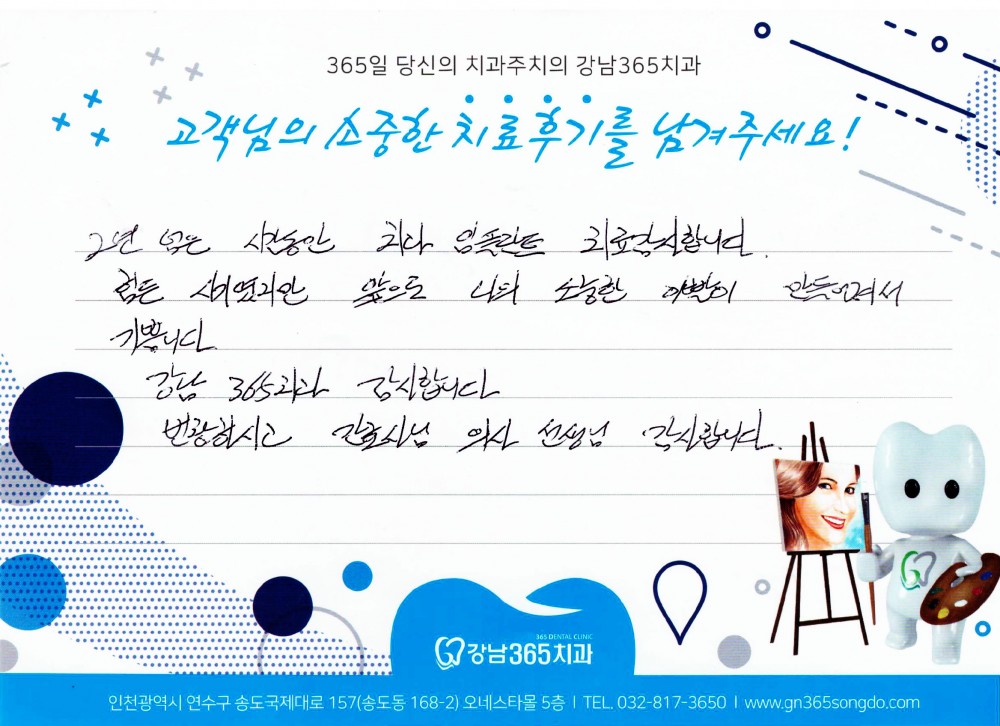 365일 당신의 치과주치의 강남365치과
고객님의 소중한 치료후기를 남겨주세요!
2년 넘는 시간동안 치아 임플란트 치료감사합니다.
힘든 시기였지만 앞으로 나의 소중한 이빨이 만들어져서
기쁩니다
강남 365치과 감사합니다
간호사님 의사 선생님 감사합니다.
365 DENTAL CLINIC
강남365치과
인천광역시 연수구 송도국제대로 157(송도동 168-2) 오네스타몰 5층 | TEL. 032-817-3650 | www.gn365songdo.com